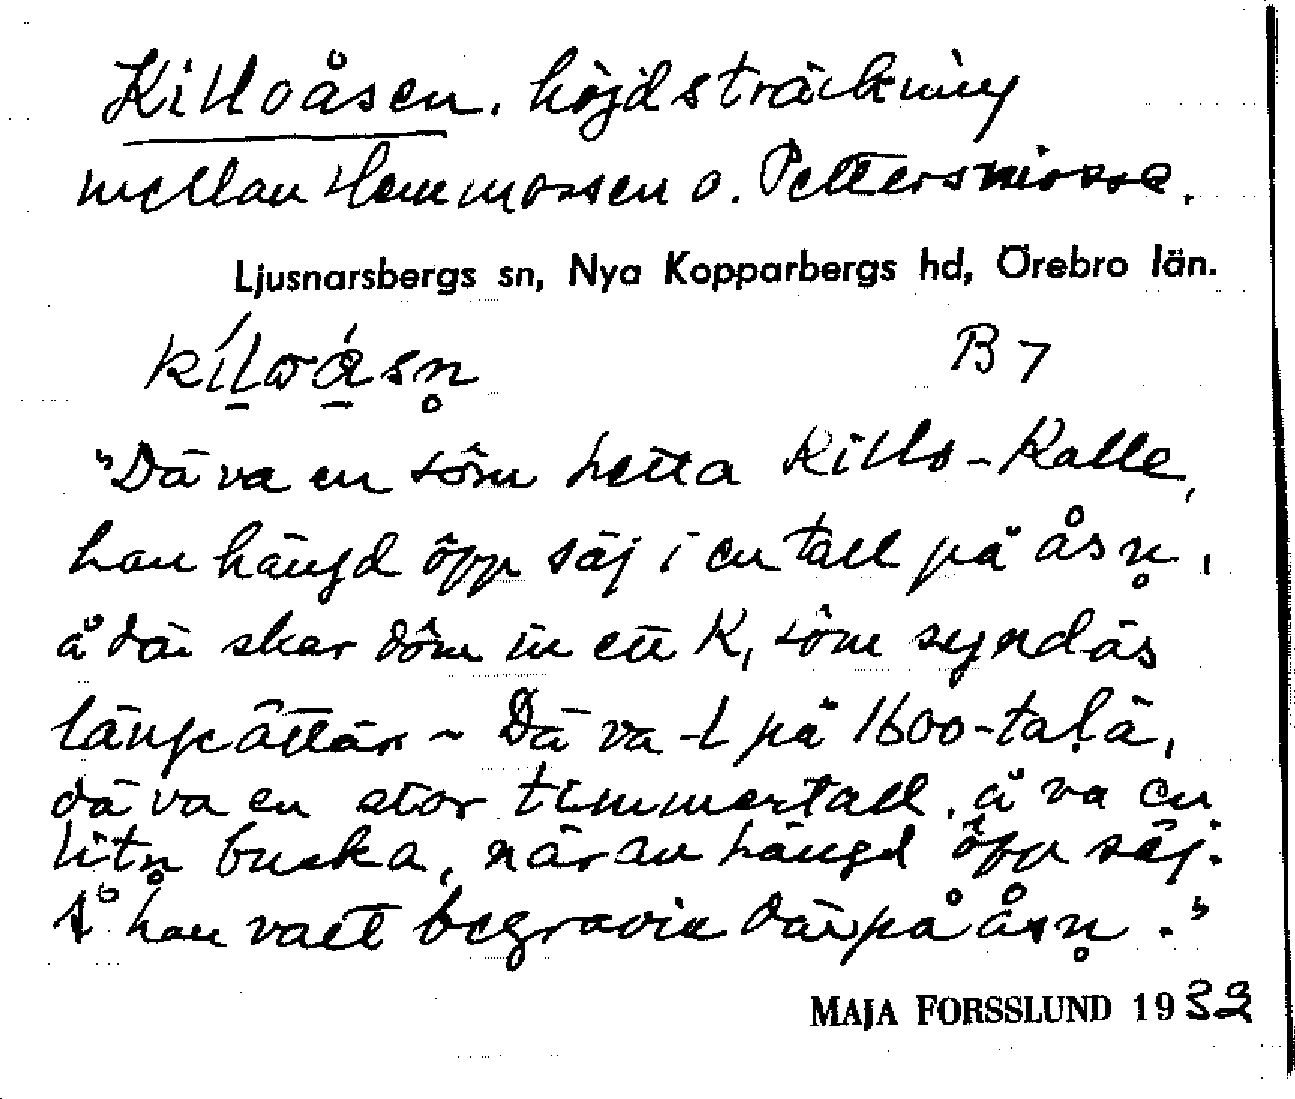 Killoåsen. höjdsträckning
mellan Hemmossen o. Pettersmosse.
Ljusnarsbergs sn, Nya Kopparbergs hd, Örebro län.
B 7
"Dä va en sôm hetta Killo-Kalle,
han hängd ôpp säj i en tall på åsn̥,
å där skar dôm in ett K, sôm syndäs
längeättär ~ Dä va -t på 1600-talä,
dä va en stor timmertall, å va en
litn̥ buska, när an hängd ôpp säj.
Å han vart begravin där på åsn̥."
MAJA FORSSLUND 1932